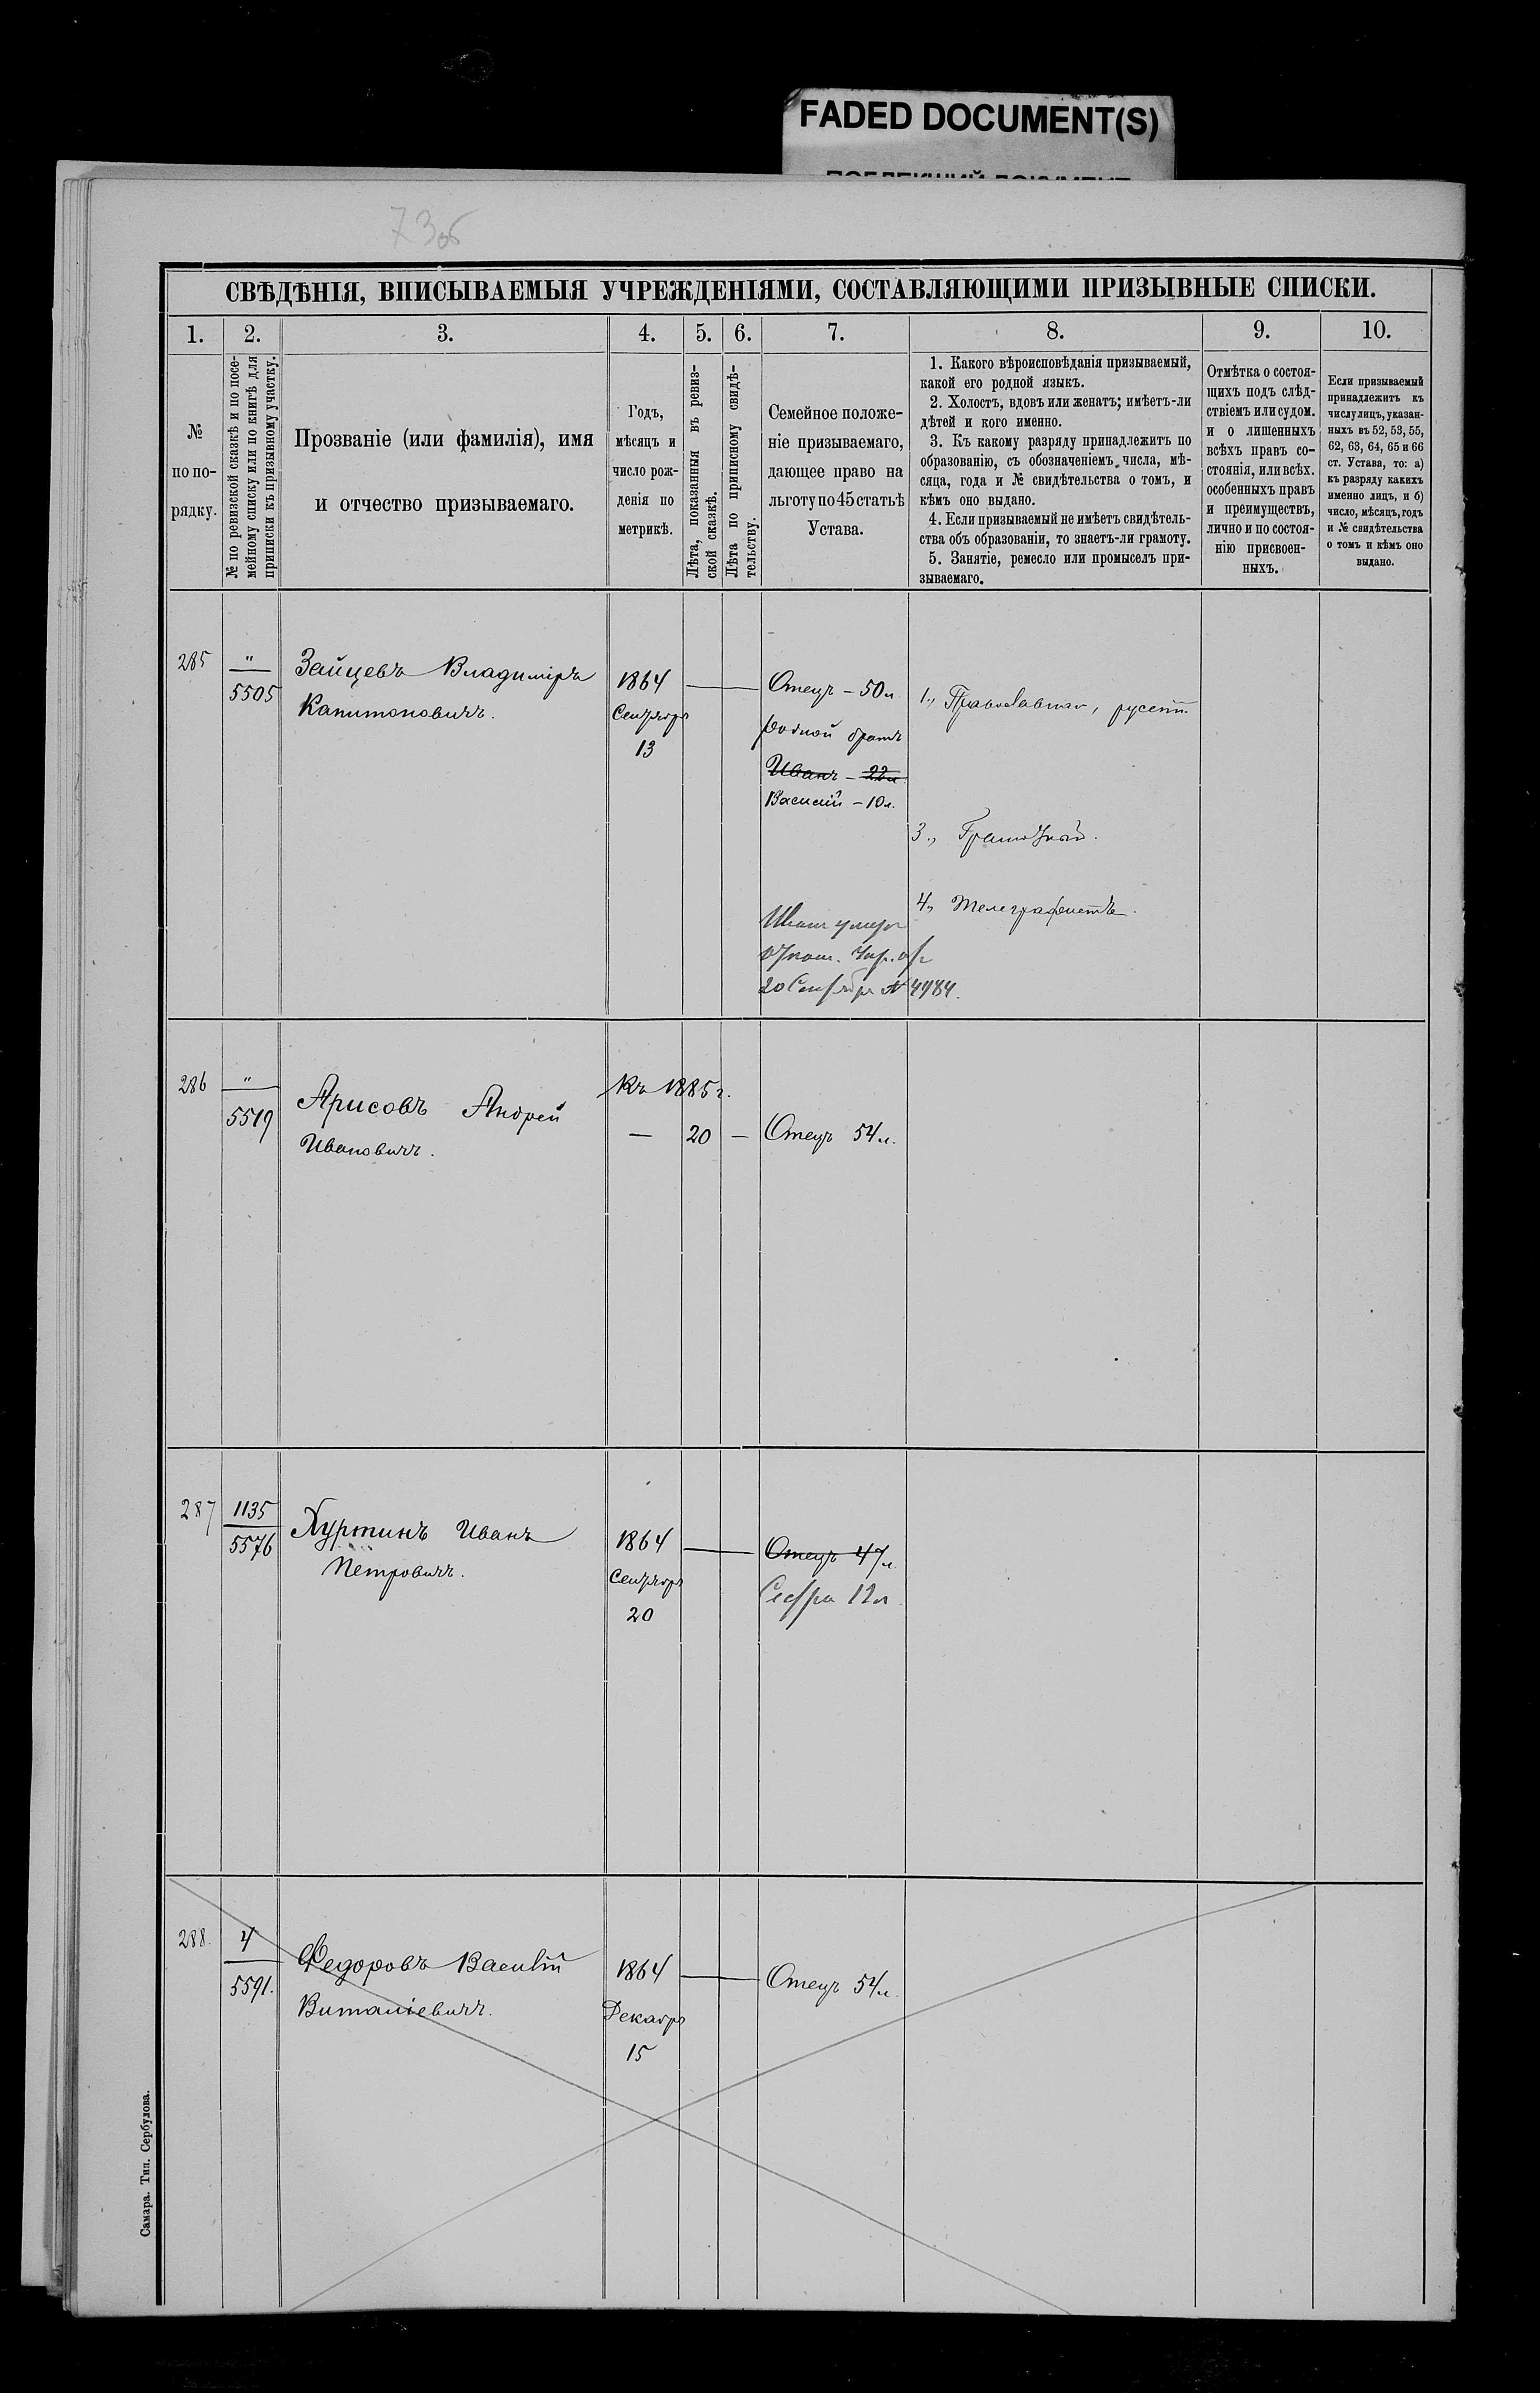 FADED DOCUMENT(S)
73об
СВѢДѢНІЯ, ВПИСЫВАЕМЫЯ УЧРЕЖДЕНІЯМИ, СОСТАВЛЯЮЩИМИ ПРИЗЫВНЫЕ СПИСКИ.
1. 2. 3. 4. 5. 6. 7. 8. 9. 10.
№
по по-
рядку.
№ по ревизской сказкѣ и по посе-
мейному списку или по книгѣ для
приписки къ призывному участку.
Прозваніе (или фамилія), имя
и отчество призываемаго.
Годъ,
мѣсяцъ и
число рож-
денія по
метрикѣ.
Лѣта, показанныя въ ревиз-
ской сказкѣ.
Лѣта по приписному свидѣ-
тельству.
Семейное положе-
ніе призываемаго,
дающее право на
льготу по 45 статьѣ
Устава.
1. Какого вѣроисповѣданія призываемый,
какой его родной языкъ.
2. Холостъ, вдовъ или женатъ; имѣетъ-ли
дѣтей и кого именно.
3. Къ какому разряду принадлежитъ по
образованію, съ обозначеніемъ числа, мѣ-
сяца, года и № свидѣтельства о томъ, и
кѣмъ оно выдано.
4. Если призываемый не имѣетъ свидѣтель-
ства объ образованіи, то знаетъ-ли грамоту.
5. Занятіе, ремесло или промыселъ при-
зываемаго.
Отмѣтка о состоя-
щихъ подъ слѣд-
ствіемъ или судом.
и о лишенныхъ
всѣхъ правъ со-
стоянія, или всѣх.
особенныхъ правъ
и преимуществъ,
лично и по состоя-
нію присвоен-
ныхъ.
Если призываемый
принадлежитъ къ
числу лицъ, указан-
ныхъ въ 52, 53, 55,
62, 63, 64, 65 и 66
ст. Устава, то: а)
къ разряду какихъ
именно лицъ, и б)
число, мѣсяцъ, годъ
и № свидѣтельства
о томъ и кѣмъ оно
выдано.
285
"
5505
Зайцевъ Владиміръ
Капитоновичъ.
1864
Сентября
13
Отецъ – 50 л
родной братъ
Иванъ – 22 л
Василій – 10 л.
Иванъ умеръ
20 Сентября № 4984.
1., Православнаго, русскій.
3., Грамотный.
4., Телеграфистъ.
286
"
5519
Арисовъ Андрей
Ивановичъ.
Къ 1885 г.
— 20 —
Отецъ 54 л.
287
1135
5576
Хуртинъ Иванъ
Петровичъ.
1864
Сентября
20
Отецъ 47 л
Сестра 12 л
288.
4
5591.
Федоровъ Василій
Виталіевичъ.
1864
Декабря
15
Отецъ 54 л.
Самара. Тип. Сербулова.